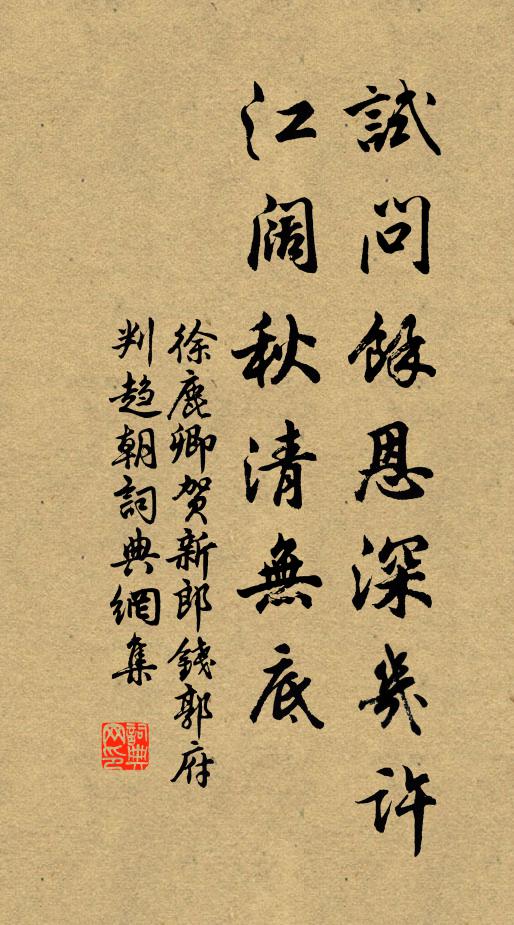 試問餘恩深幾許
江阔秋清無底
徐鹿卿贺新郎錢郭府
判趋朝詞典網集
詞典网印